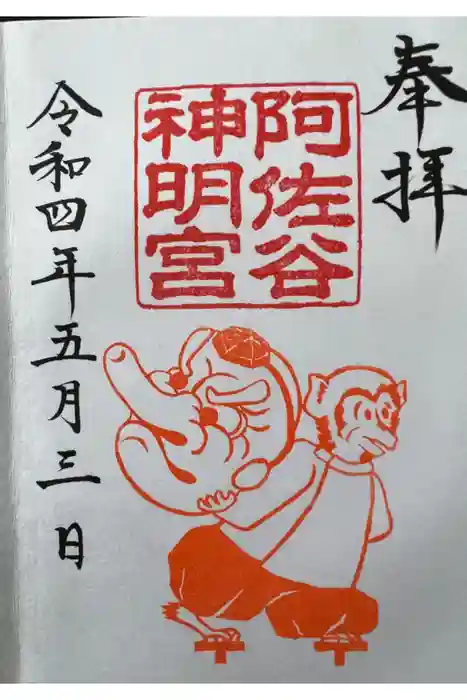 奉拝
阿佐谷
神明宮
令和四年五月三日